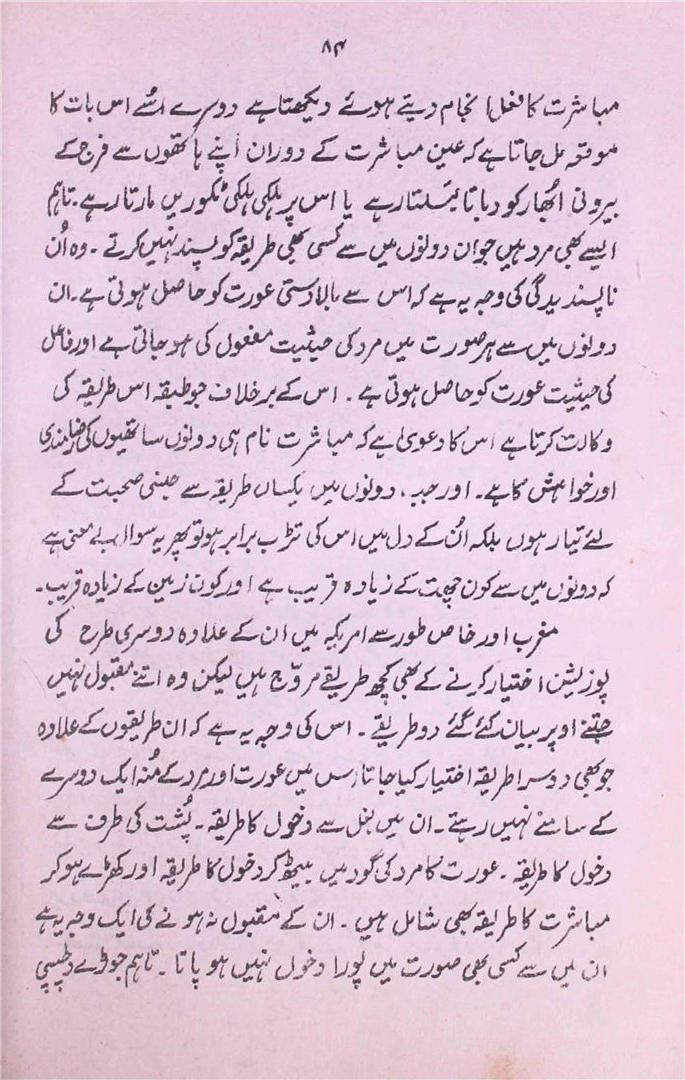 ۸۴
مباشرت کا فعل انجام دیتے ہوئے دیکھتا ہے دوسرے اسُے اس بات کا
موقعہ مل جاتا ہے کہ عین مباشرت کے دوران اپنے ہاتھوں سے فرج کے
بیرونی اُبھار کو دباتا مَسلتا رہے یا اس پر ہلکی ہلکی ٹکوریں مارتا رہے۔ تاہم
ایسے بھی مرد ہیں جو ان دونوں میں سے کسی بھی طریقہ کو پسند نہیں کرتے ۔ وہ اُن
ناپسندیدگی کی وجہ یہ ہے کہ اس سے بالادستی عورت کو حاصل ہوتی ہے۔ ان
دونوں میں سے ہر صورت میں مرد کی حیثیت مفعول کی ہو جاتی ہے اور فاعل
کی حیثیت عورت کو حاصل ہوتی ہے ۔ اس کے برخلاف جو طبقہ اس طریقہ کی
وکالت کرتا ہے اس کا دعویٰ ہے کہ مباشرت نام ہی دونوں ساتھیوں کی رضامندی
اور خواہش کا ہے۔ اور جب، دونوں میں یکساں طریقہ سے جنسی صحبت کے
لئے تیار ہوں بلکہ اُن کے دل میں اس کی تڑپ برابر ہو تو پھر یہ سوال بے معنی ہے
کہ دونوں میں سے کون چھت کے زیادہ قریب ہے اور کون زمین کے زیادہ قریب۔
مغرب اور خاص طور سے امریکہ میں ان کے علاوہ دوسری طرح کی
پوزیشن اختیار کرنے کے بھی کچھ طریقے مروّج ہیں لیکن وہ اتنے مقبول نہیں
جتنے اوپر بیان کئے گئے دو طریقے ۔ اس کی وجہ یہ ہے کہ ان طریقوں کے علاوہ
جو بھی دوسرا طریقہ اختیار کیا جاتا اس میں عورت اور مرد کے مُنہ ایک دوسرے
کے سامنے نہیں رہتے۔ ان میں بغل سے دخول کا طریقہ ۔ پُشت کی طرف سے
دخول کا طریقہ ۔ عورت کا مرد کی گود میں بیٹھ کر دخول کا طریقہ اور کھڑے ہو کر
مباشرت کا طریقہ بھی شامل ہیں ۔ ان کے مقبول نہ ہونے کی ایک وجہ یہ ہے
ان میں سے کسی بھی صورت میں پورا دخول نہیں ہو پاتا ۔ تاہم جوڑے دلچسپی